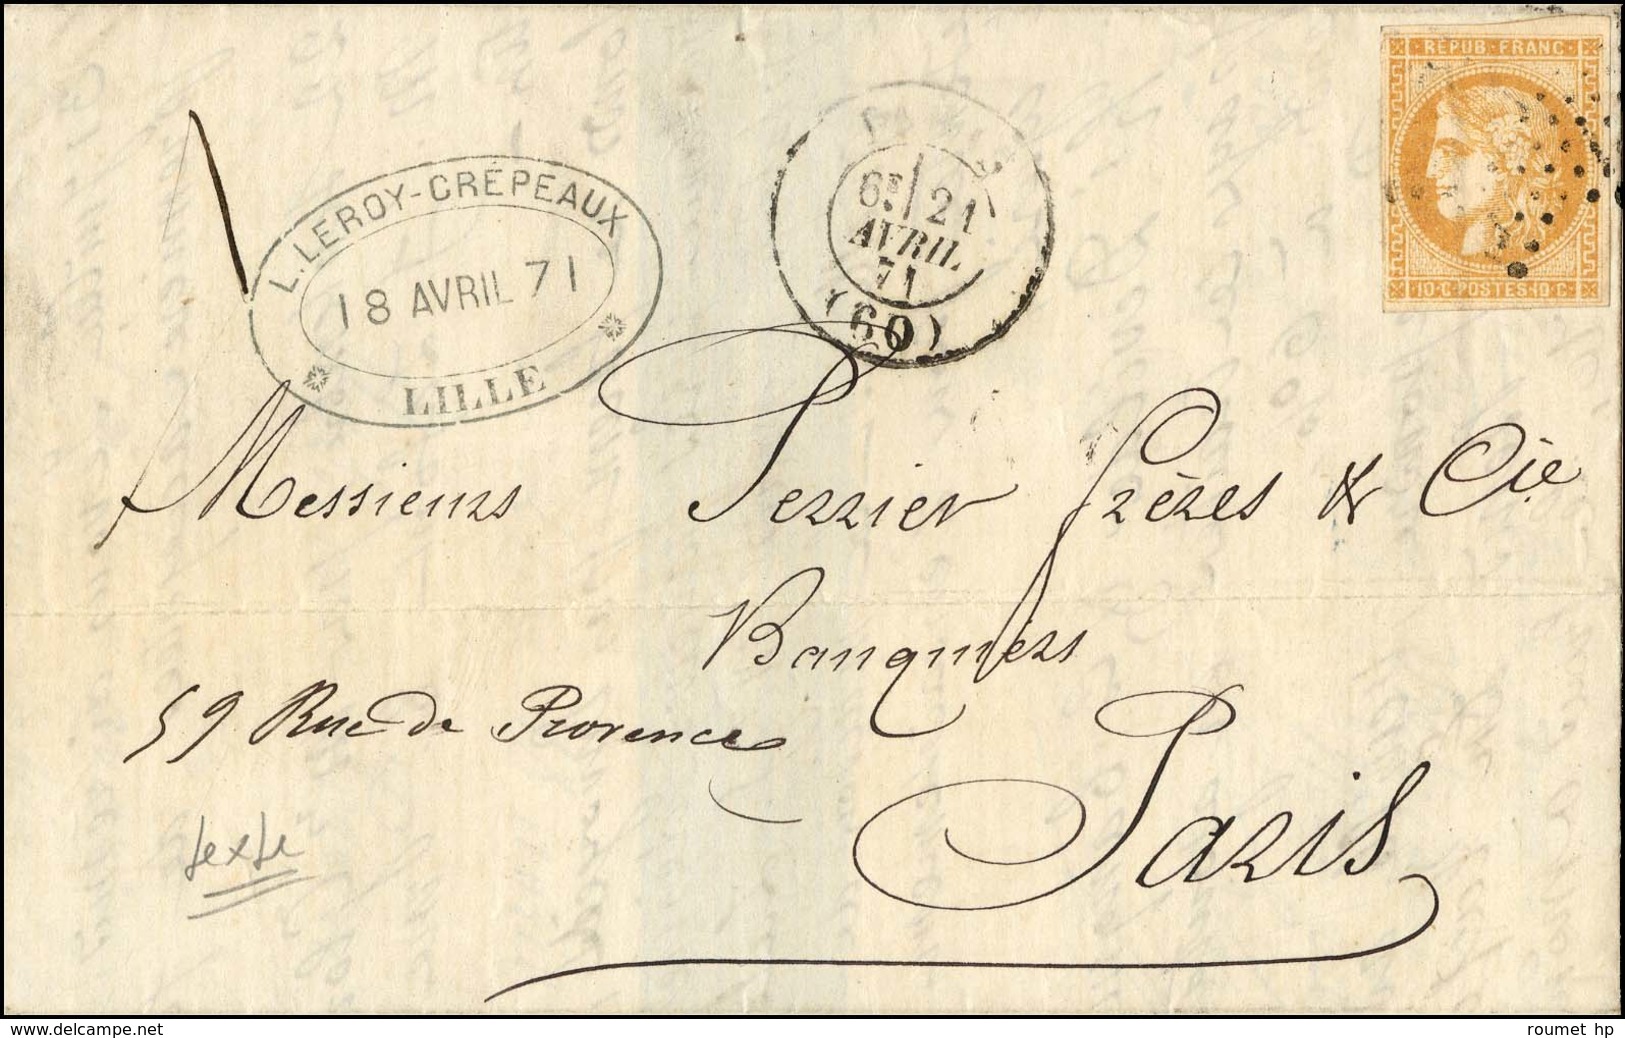 RÉPUB·FRANC·
10·C·POSTES·10·C·
L. LEROY-CRÉPEAUX
18 AVRIL 71
LILLE
6E 21
AVRIL
71
(60)
Messieurs Perrier frères & Cie
Banquiers
59 Rue de Provence
Paris
texte
www.delcampe.net
roumet hp